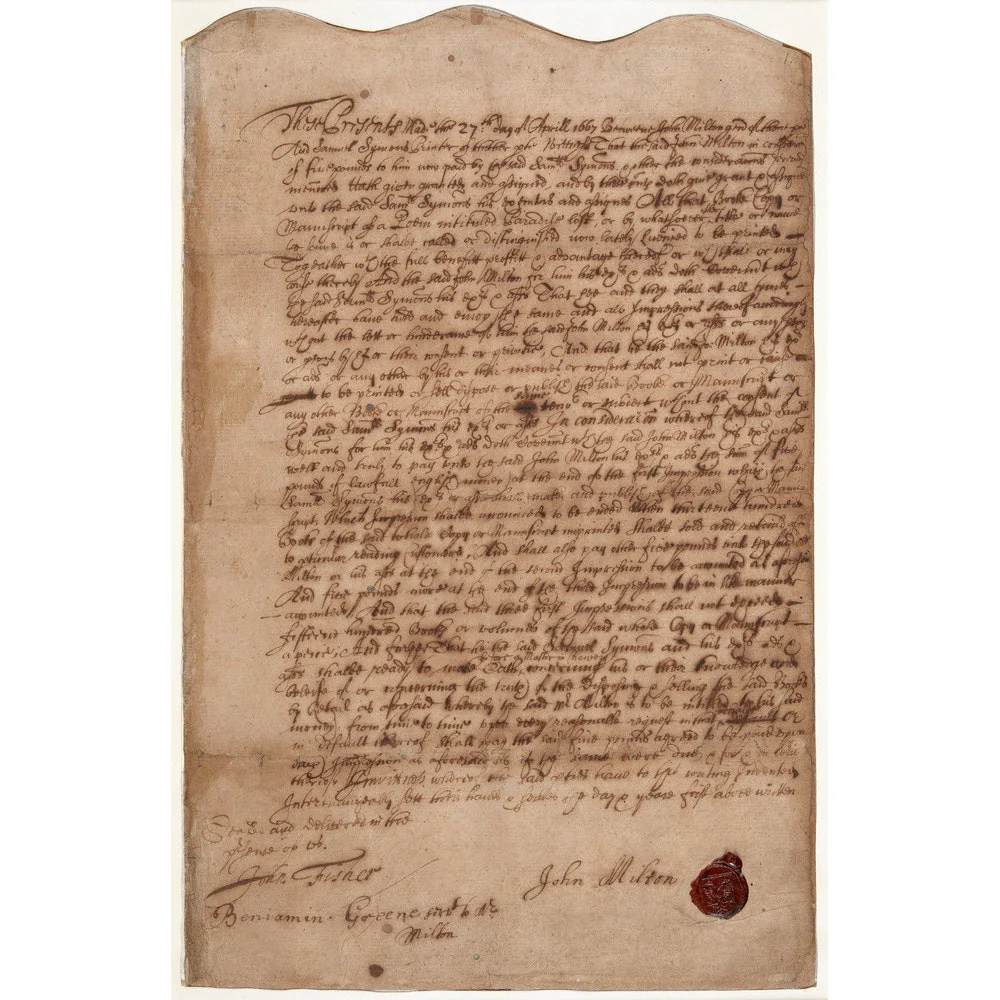 These Presents Made the 27th day of Aprill 1667 Betweene John Milton gent of thone pte
And Samuel Symons Printer of thother pte Wittness That the said John Milton in consideraon
of five pounds to him now paid by the said Samll Symons & other the consideraons herein
menconed Hath given granted and assigned, and by these pnts doth give grant & assigne
unto the said Samll Symons his executors and assignes All that Booke Copy or
Manuscript of a Poem intituled Paradise lost, or by whatsoever other title or name
the same is or shalbe called or distinguished now lately Licensed to be printed
Together wth the full benefitt proffitt & advantage thereof or wch shall or may
arise thereby And the said John Milton for him his exrs & ads doth Covenant wth
the said Samll Symons his exrs & assns That hee and they shall at all times
hereafter have hold and enjoy the same and all Impressions thereof accordingly
wthout the lett or hinderance of him the said John Milton his exrs or assns or any person
or psons by his or their consent or privitie, And that he the said Jo: Milton his exrs
or ads or any other by his or their meanes or consent shall not print or cause
to be printed or sell dispose or publish the said Booke or Manuscript or
any other Booke or Manuscript of the same tenor or subject wthout the consent of
the said Samll Symons his exrs or assns In consideracon whereof the said Samll
Symons for him his exrs & ads doth Covenant wth the said John Milton his exrs & assns
well and truly to pay unto the said John Milton his exrs & ads the sum of five
pounds of lawfull english money at the end of the first Impression which the said
Samll Symons his exrs or assns shall make and publish of the said Copy or Manu-
script, Which Impression shalbe accounted to be ended when thirteene hundred
Books of the said whole Copy or Manuscript imprinted shalbe sold and retaild off
to pticular reading Customers, And shall also pay other five pounds unto the said
Milton or his assns at the end of the second Impression to be accounted as aforesaid
And five pounds more at the end of the third Impression to be in like manner
accounted, And that the said three first Impressions shall not exceed
fifteene hundred Books or volumes of the said whole Copy or Manuscript
a peice, And further That he the said Samuel Symons and his exrs ads &
assns shalbe ready to make Oath before a Master in Chancery concerning his or their knowledge and
beleife of or concerning the truth of the disposing & selling the said Books
by Retail as aforesaid whereby the said Mr Milton is to be intitled to his said
money from time to time upon every reasonable request in that behalfe or
in default thereof shall pay the said five pounds agreed to be paid upon
each Impression as aforesaid as if the same were due, & for & in lieu
thereof In witness whereof the said pties have to this writing indented
Interchangeably sett their hands & seales the day & yeare first above written
Sealed and delivered in the
psence of us.
John Fisher
John Milton
Beniamin Greene servt to Mr
Milton